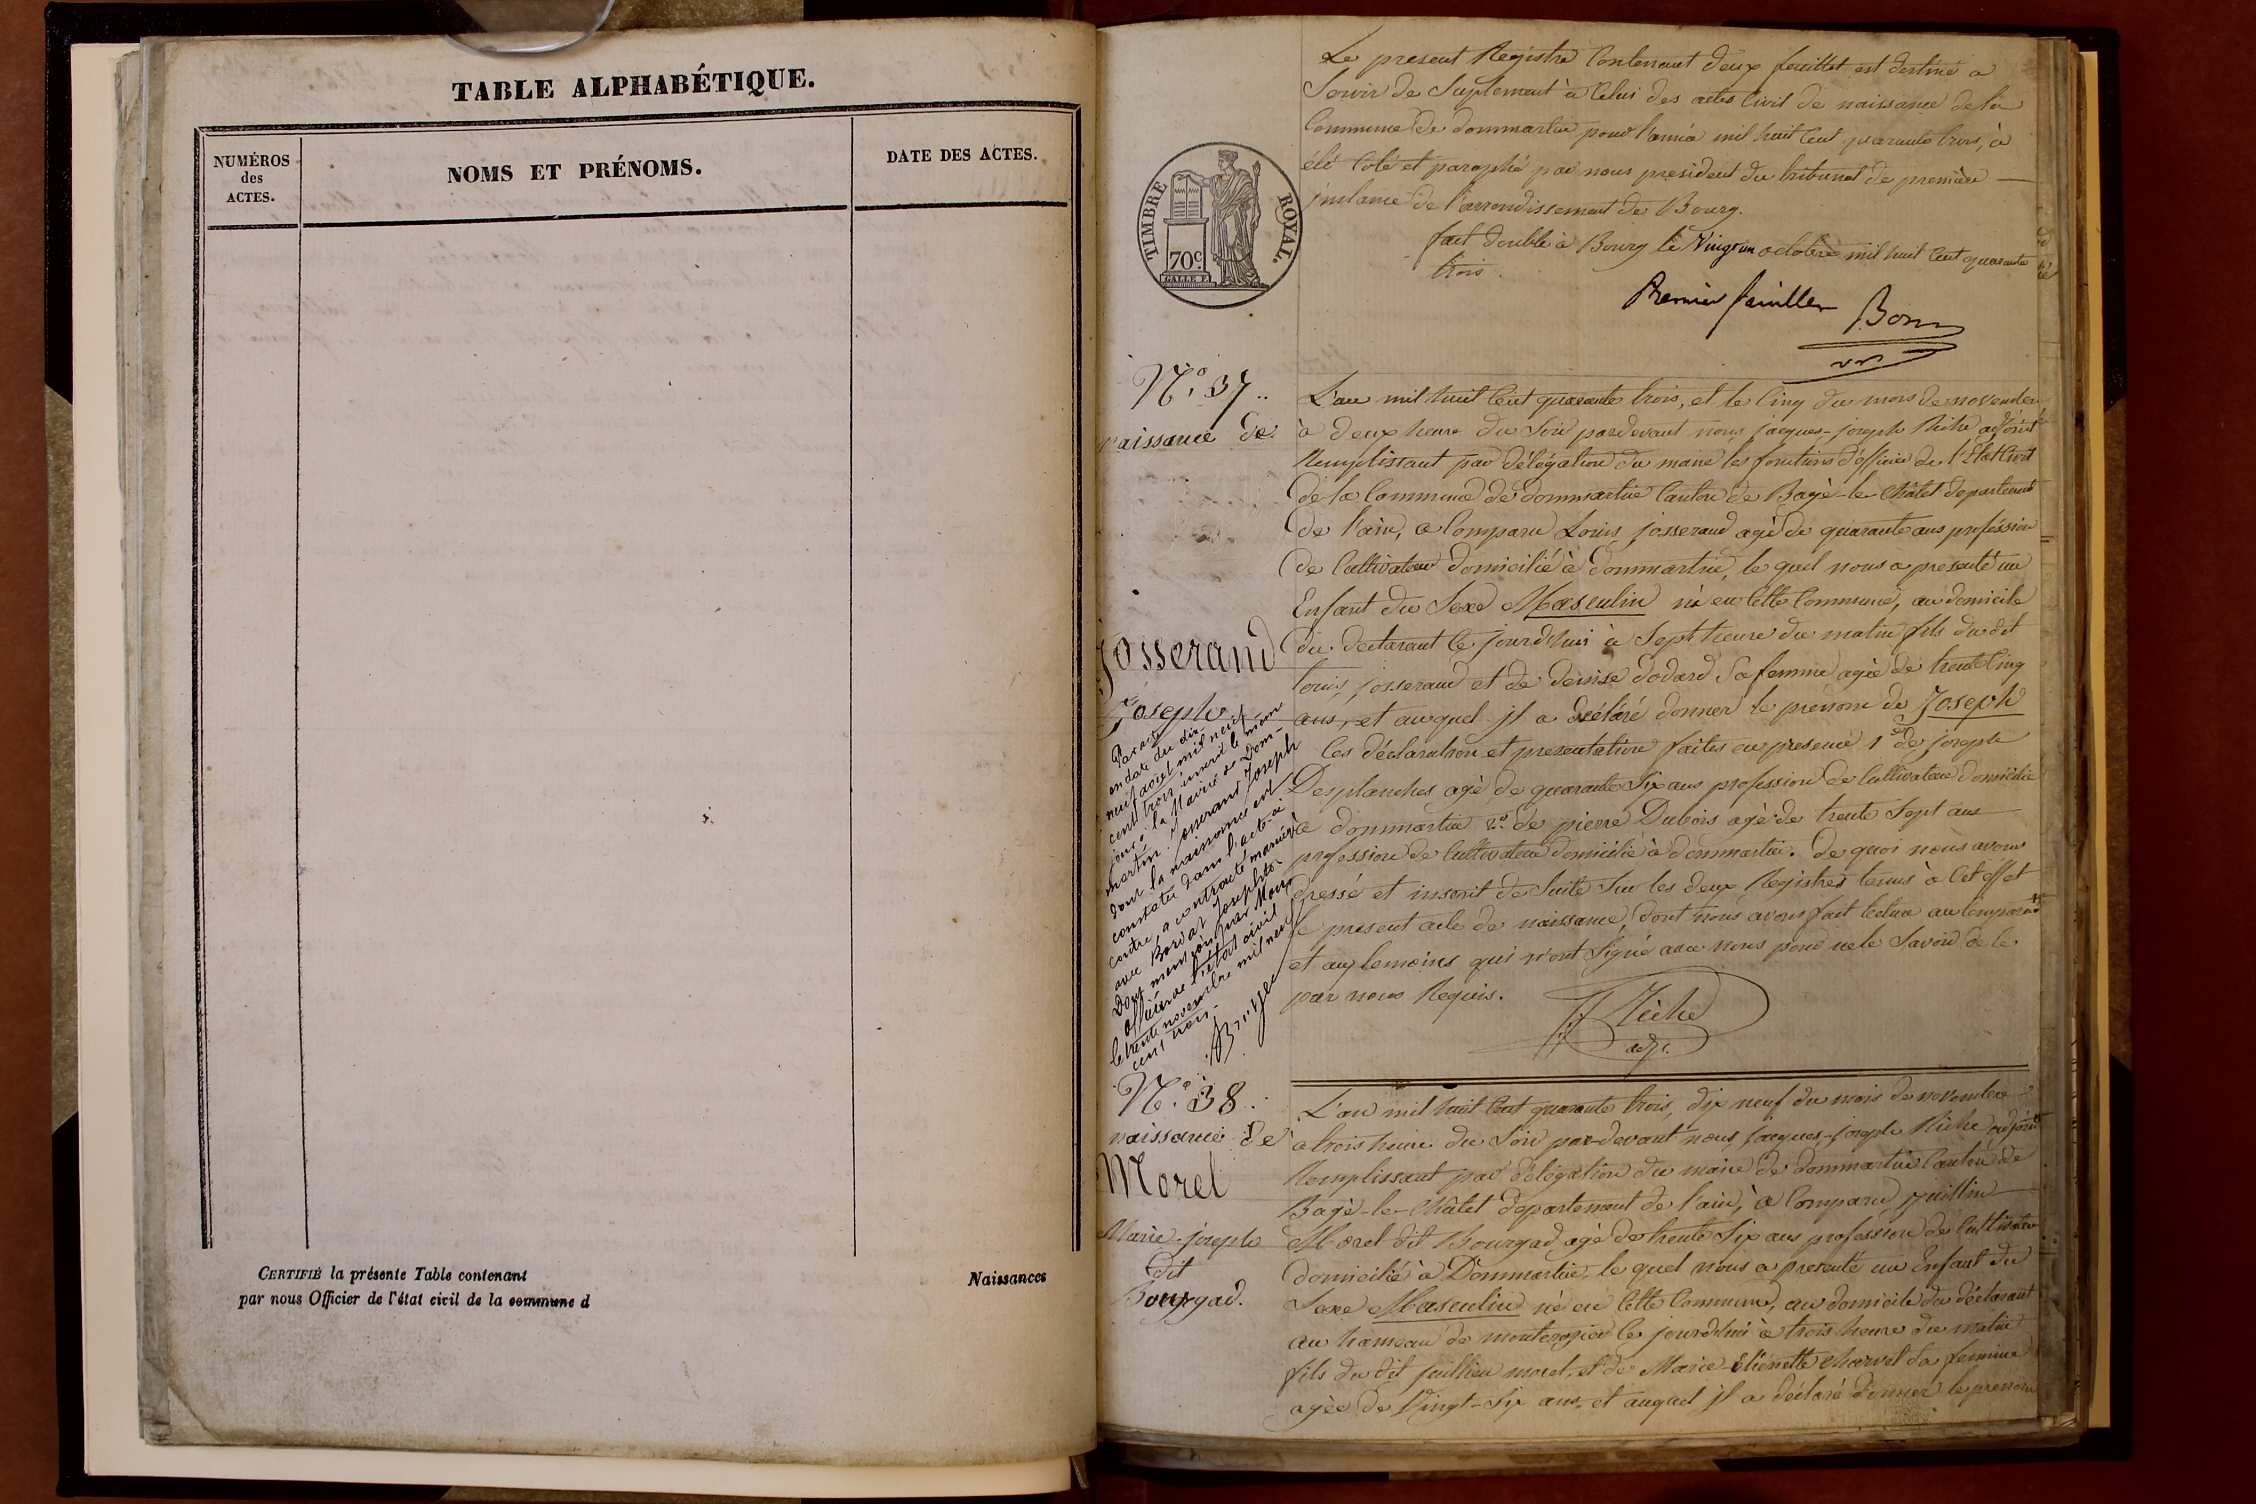 TABLE ALPHABÉTIQUE.
NUMÉROS
des
ACTES.
NOMS ET PRÉNOMS.
DATE DES ACTES.
CERTIFIÉ la présente Table contenant
Naissances
par nous Officier de l'état civil de la commune d
Le present Registre Contenant deux feuillet est destiné a
Servir de Suplement à Celui des actes Civil de naissance de la
Commune de dommartin pour l'année mil huit Cent quarante trois, à
été Coté et paraphé par nous president du tribunal de première
jnstance de l'arrondissement de Bourg.
fait double à Bourg le Vingt un octobre mil huit Cent quarante
trois.
Premier feuillet
TIMBRE ROYAL.
70c.
N.° 37..
naissance de
Josserand
Joseph
Par acte
en date du dix-
neuf aout mil neuf
cent trois, inscrit le même
jour à la Mairie de Dom-
martin Josserand Joseph
dont la naissance est
constatée dans l'acte ci
contre, a contracté mariage
avec Bordat Josephte
Dont mention par Nous
officier de l'état civil
le trente novembre mil neuf
cent trois.
L'an mil huit Cent quarante trois, et le Cinq du mois de novembre
à deux heure du Soir pardevant nous jacques-joseph Riche adjoint
Remplissant par délégation du maire les fonctions d'officier de l'Etat Civil
de la Commune de dommartin Canton de Bagé-le-Châtel departement
de l'ain, a Comparu Louis josserand agé de quarante ans profession
de Cultivateur domicilié à dommartin, le quel nous a presenté un
Enfant du Sexe Masculin né en Cette Commune, au domicile
du declarant Ce jourd'hui à Sept heure du matin fils du dit
louis josserand et de denise dodard Sa femme agée de trente Cinq
ans, et auquel jl a déclaré donner le prenom de Joseph
Ces déclaration et presentation faites en presence 1° de joseph
Desplanches agé de quarante Six ans profession de Cultivateur domicilié
à dommartin 2° de pierre Dubois agé de trente Sept ans
profession de Cultivateur domicilié à dommartin. de quoi nous avons
dressé et inscrit de Suite Sur les deux Registres tenus à Cet effet
le present acte de naissance, dont nous avons fait lecture au Comparant
et aux temoins qui n'ont Signé avec nous pour ne le Savoir de ce
par nous Requis.
Riche
adjt.
N.° 38.
naissance de
Morel
Marie-joseph
dit
Bourgad.
L'an mil huit Cent quarante trois, dix neuf du mois de novembre
à trois heure du Soir par-devant nous jacques-joseph Riche adjoint
Remplissant par délégation du maire de dommartin Canton de
Bagé-le-Châtel departement de l'ain, a Comparu juillin
Morel dit Bourgad agé de trente Six ans profession de Cultivateur
domicilié à Dommartin, le quel nous a presenté un Enfant du
Sexe Masculin né en Cette Commune, au domicile du déclarant
au hameau de Ce jourd'hui à trois heure du matin
fils du dit juillien morel, et de Marie-Etiénette charvet Sa femme
agée de Vingt-Six ans, et auquel jl a déclaré donner le prenom